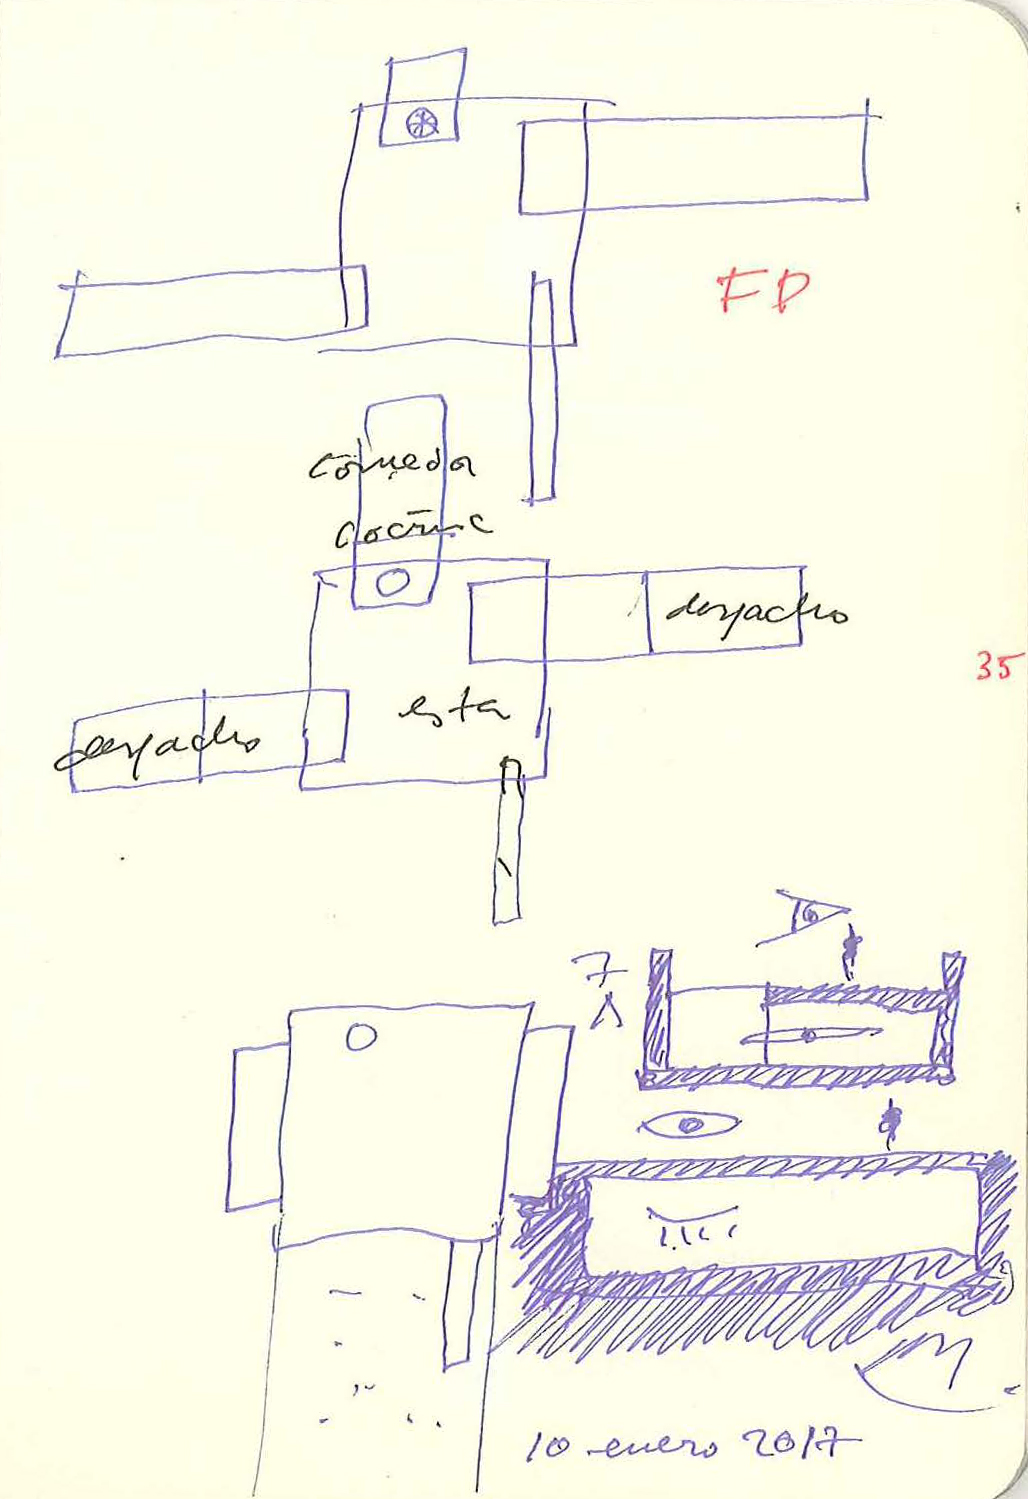 FD
comedor
cocina
despacho
35
despacho
esta
10 enero 2017